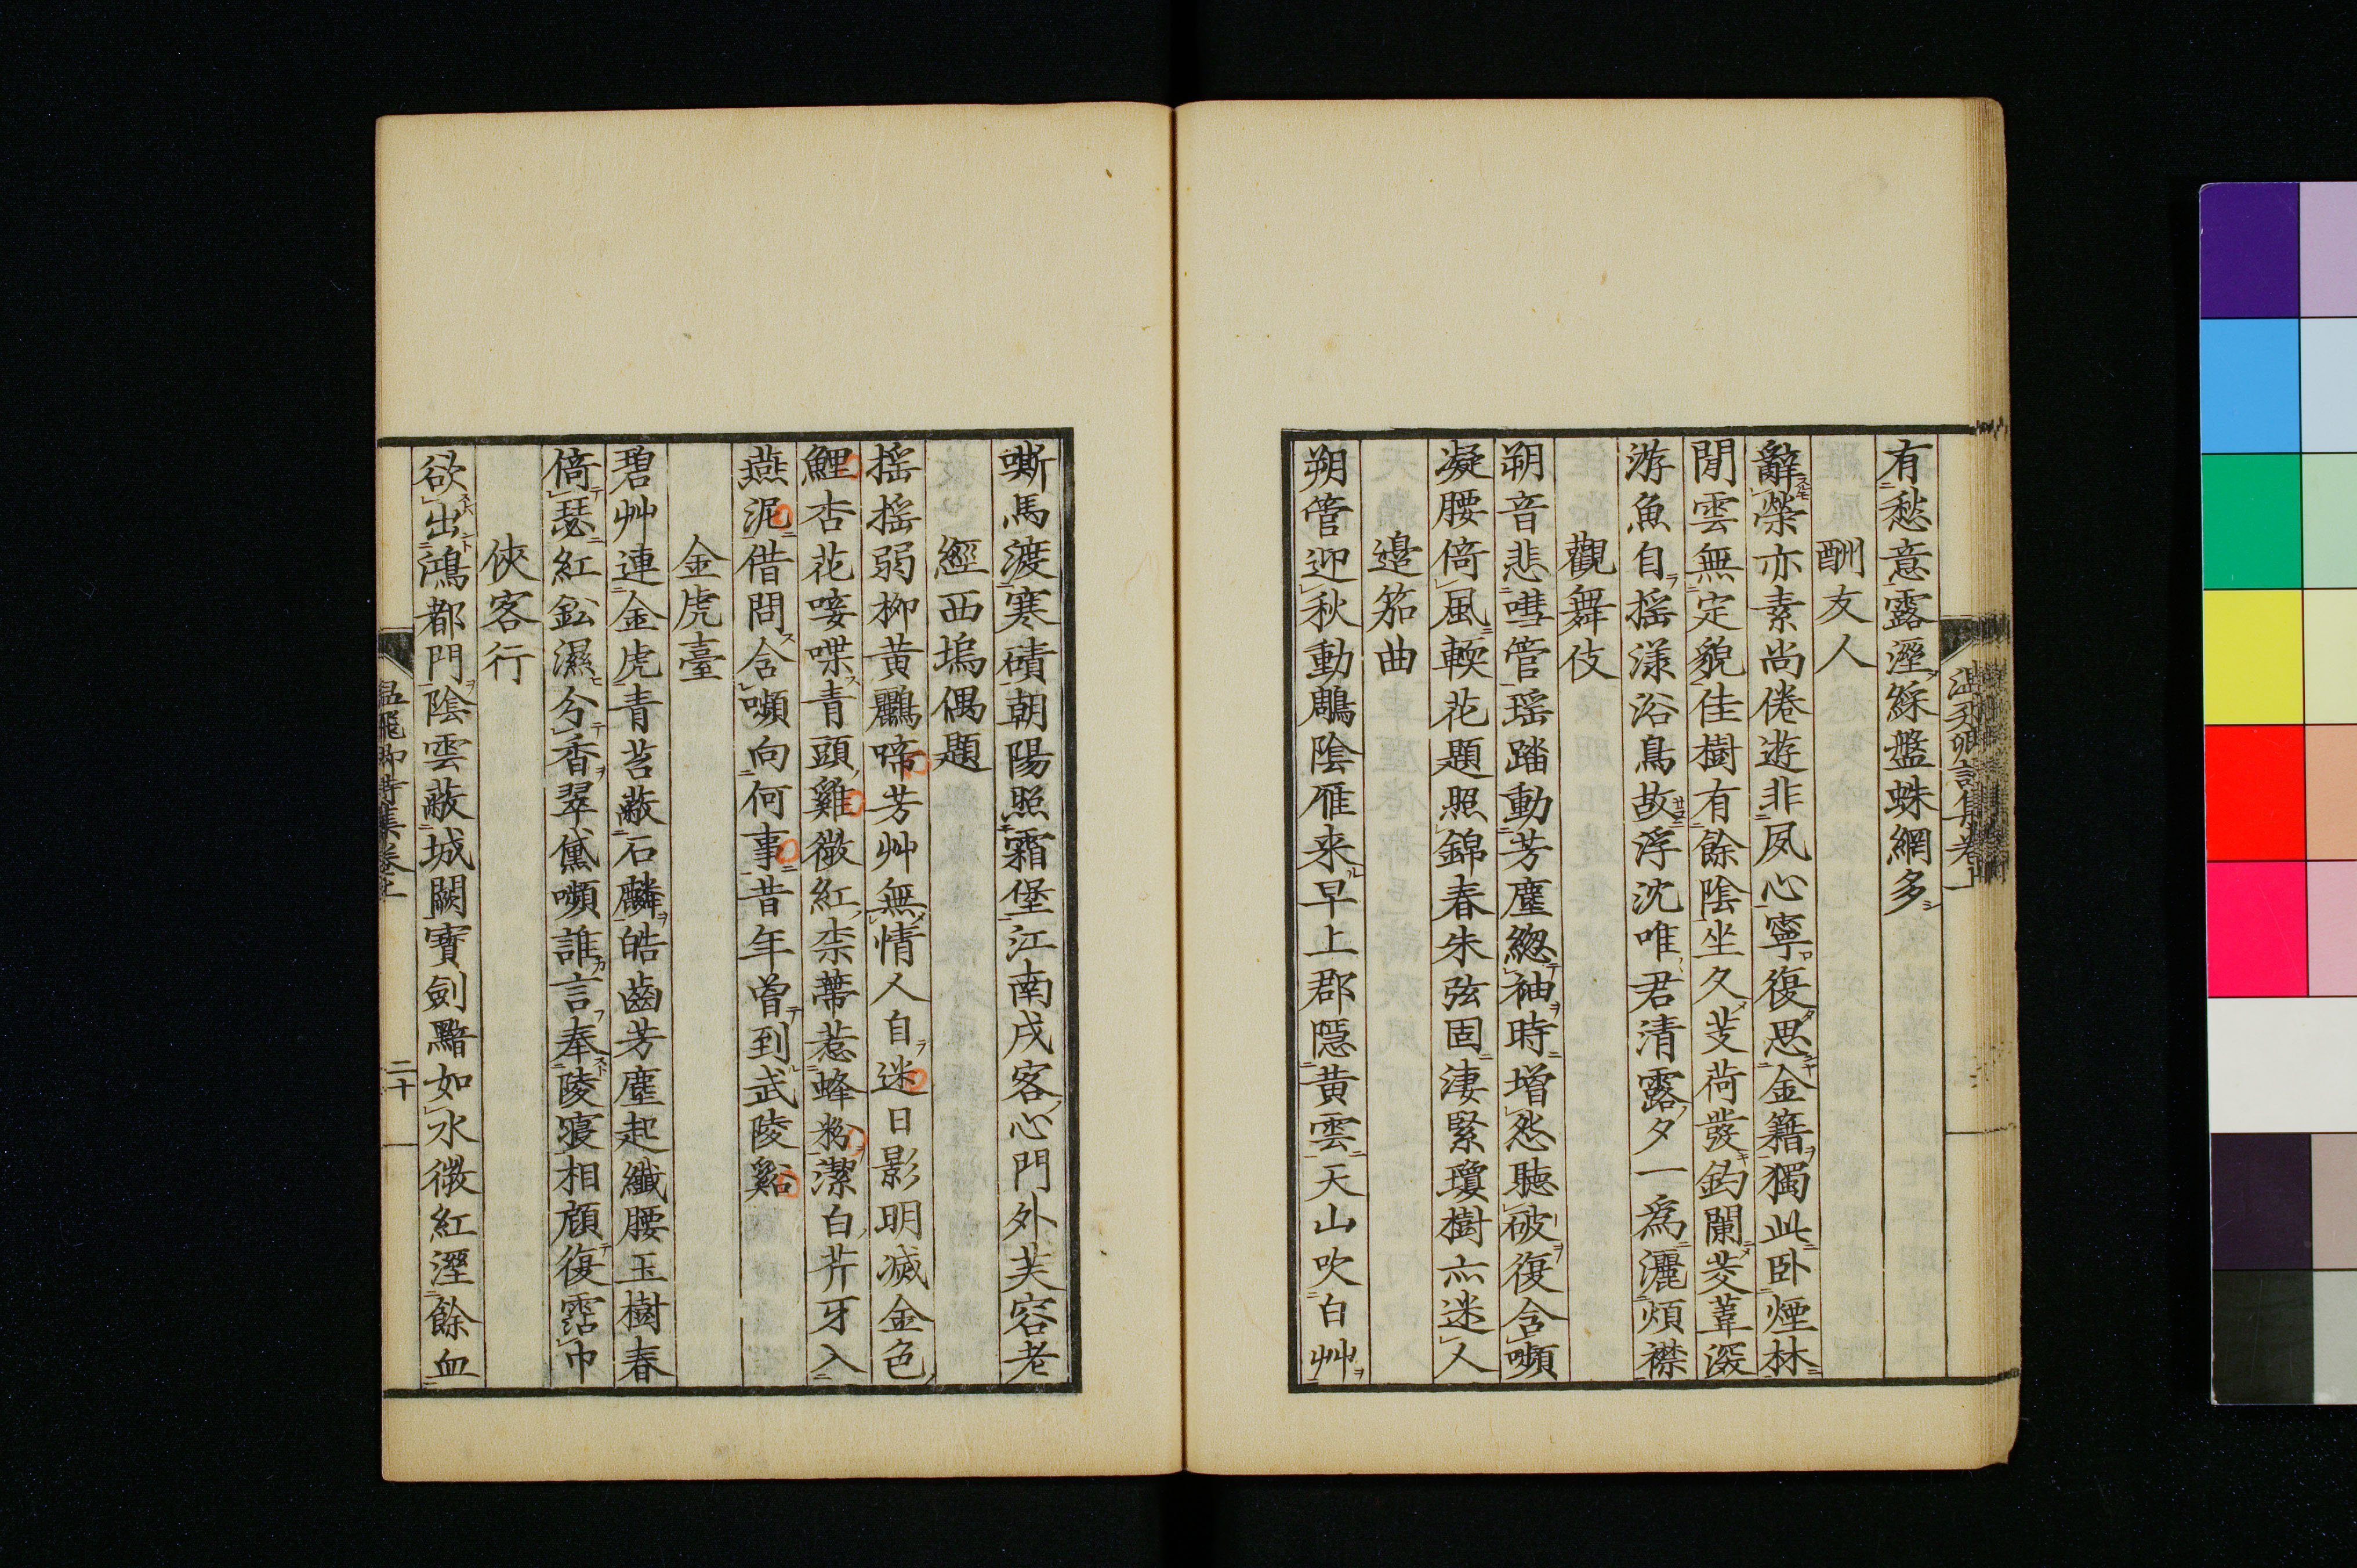 有愁意露溼綵盤蛛網多
酬友人
辭榮亦素尚倦遊非夙心寧復思金籍獨此卧煙林
閒雲無定貌佳樹有餘陰坐久芰荷發釣闌茭葦深
游魚自揺漾浴鳥故浮沈唯君清露夕一爲灑煩襟
觀舞伎
朔音悲嘒管瑶踏動芳塵緫袖時増怨聽破復含嚬
凝腰倚風輭花題照錦春朱弦固淒緊瓊樹亦迷人
邉笳曲
朔管迎秋動鵰陰雁来早上郡隱黄雲天山吹白艸
嘶馬渡寒磧朝陽照霜堡江南戍客心門外芙容老
經西塢偶題
揺揺弱柳黄鸝啼芳艸無情人自迷日影明滅金色
鯉杏花唼喋青頭雞微紅柰蔕惹蜂粉潔白芹牙入
燕泥借問含嚬向何事昔年曾到武陵谿
金虎臺
碧艸連金虎青苔蔽石麟皓齒芳塵起纖腰玉樹春
倚瑟紅鈆濕分香翠黛嚬誰言奉陵寝相顔復霑巾
俠客行
欲出鴻都門陰雲蔽城闕寳劍黯如水微紅溼餘血
温飛卿詩集卷上
二十